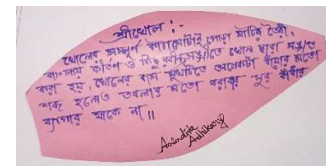 শ্রীখোল :-
খোলের সম্পূর্ণ কাঠামোটাই পোড়া মাটির তৈরী,
বাংলায় কীর্তন ও কিছু খোল দ্বারা সঙ্গত
করা হয়, খোলের বাম মুখটিতে অনেকটা বাঁয়ার মতো
শব্দ হলেও তবলার মতো বরাবর সুর বাঁধার
ব্যাপার থাকে না॥
Anindita
Adhikary